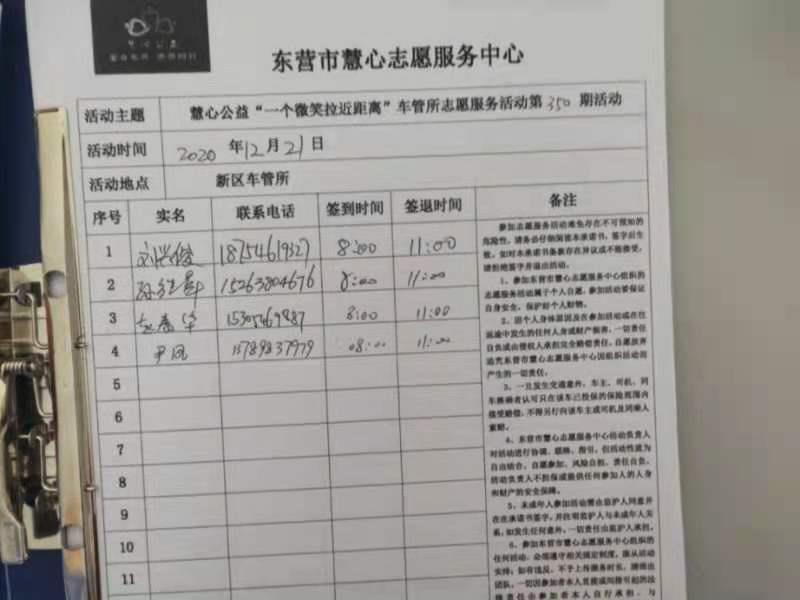 东营市慧心志愿服务中心
活动主题 慧心公益“一个微笑拉近距离”车管所志愿服务活动第350期活动
活动时间 2020年12月21日
活动地点 新区车管所
序号 实名 联系电话 签到时间 签退时间 备注
1 刘兴俊 18754619327 8:00 11:00
2 15263804676 8:00 11:00
3 15305469887 8:00 11:00
4 尹凤 15789837979 08:00 11:00
5
6
7
8
9
10
11
参加志愿服务活动难免存在不可预知的
危险性，请务必仔细阅读本承诺书，签字后生
效，如对本承诺书条款存在异议或不能接受，
请拒绝签字并退出活动。
1、参加东营市慧心志愿服务中心组织的
志愿服务活动属于个人自愿，参加活动要保证
自身安全，保护好个人财物。
2、因个人身体原因及在参加活动或在往
返途中发生的任何人身或财产损害，一切责任
自负或由侵权人承担完全赔偿责任，自愿放弃
追究东营市慧心志愿服务中心因组织活动而
产生的一切责任。
3、一旦发生交通意外，车主、司机、同
车乘确者认可只在该车已投保的保险范围内
接受赔偿，不得另行向该车主或司机及同乘人
索赔。
4、东营市慧心志愿服务中心活动负责人
对活动进行协调、联络、指引，但活动性质为
自由结合、自愿参加、风险自担、责任自负，
活动负责人不担保或提供任何参加人的人身
和财产的安全保障。
5、未成年人参加活动需由监护人同意并
在此承诺书签字，并注明监护人与未成年人关
系，如发生任何意外，一切责任由监护人承担。
6、参加东营市慧心志愿服务中心组织的
任何活动，必须遵守相关规定制度，服从活动
安排；如有违反，不予上传服务时长，清退出
团队，一切因参加者本人直接或间接引起的法
律责任由参加者本人自行承担，与